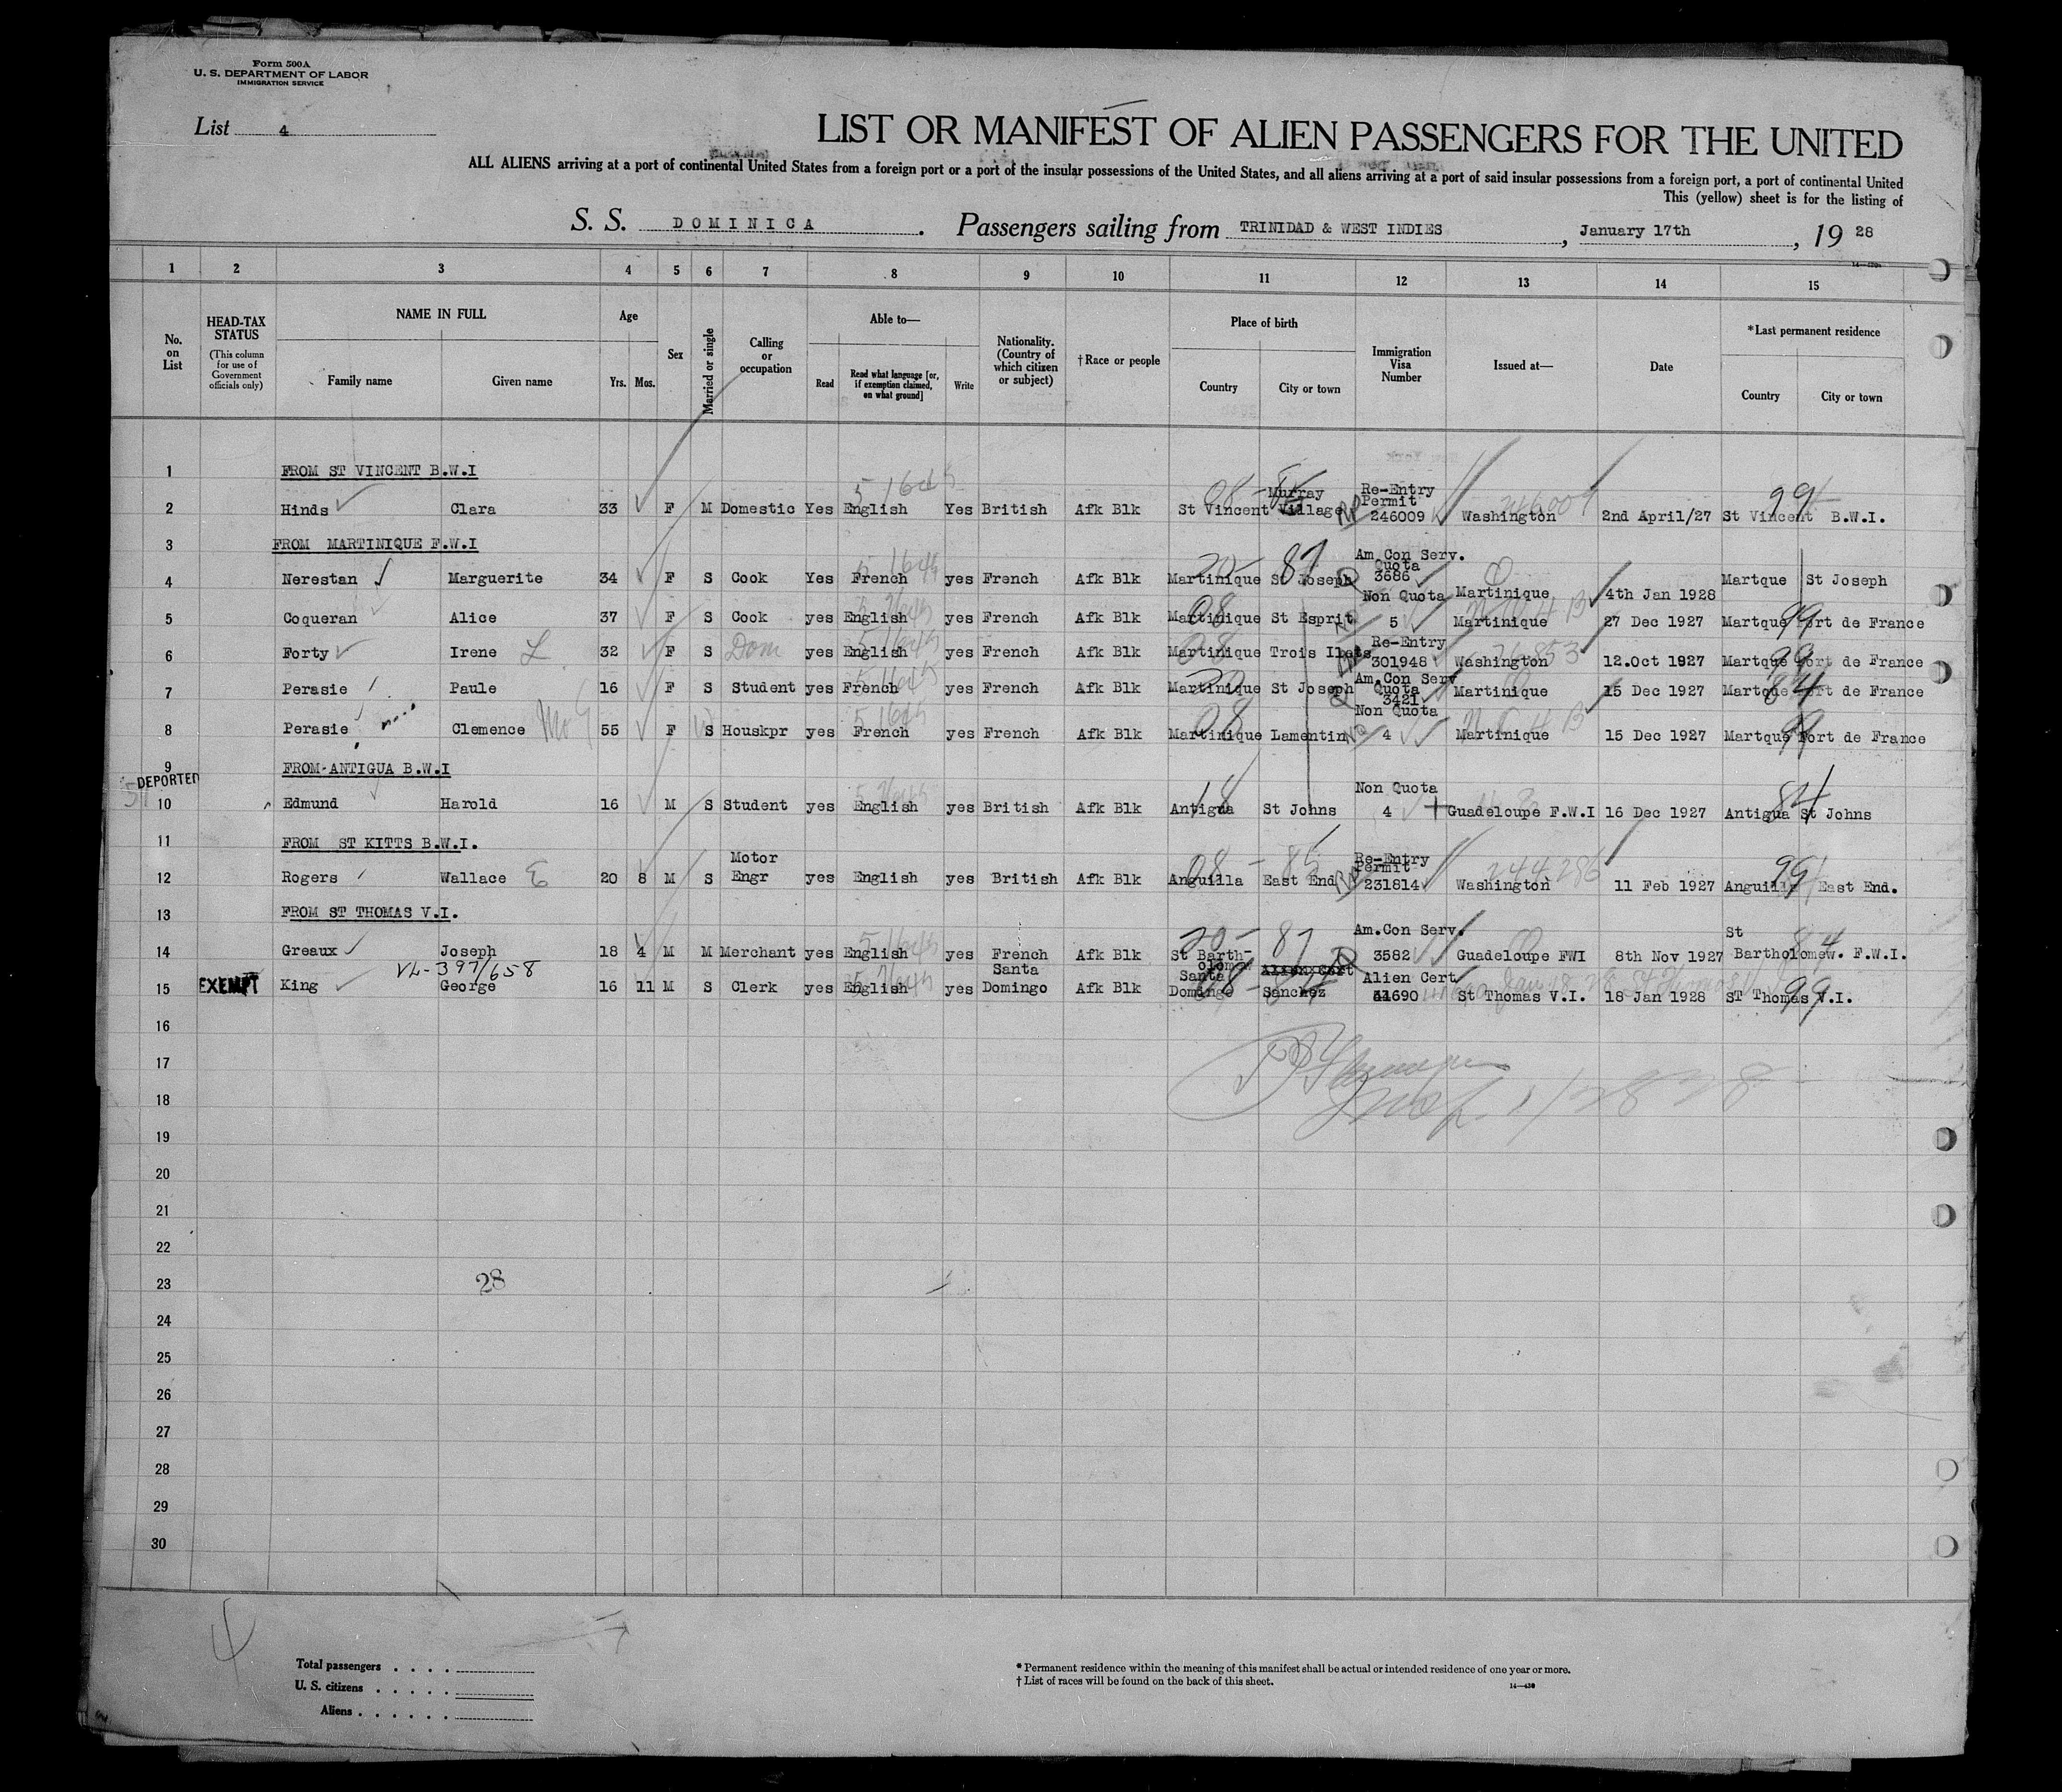 Form 500A
U. S. DEPARTMENT OF LABOR
IMMIGRATION SERVICE
List 4
LIST OR MANIFEST OF ALIEN PASSENGERS FOR THE UNITED
ALL ALIENS arriving at a port of continental United States from a foreign port or a port of the insular possessions of the United States, and all aliens arriving at a port of said insular possessions from a foreign port, a port of continental United
This (yellow) sheet is for the listing of
S. S. DOMINICA. Passengers sailing from TRINIDAD & WEST INDIES, January 17th, 19 28
1 2 3 4 5 6 7 8 9 10 11 12 13 14 15
No. on List
HEAD-TAX STATUS (This column for use of Government officials only)
NAME IN FULL
Family name Given name
Age
Yrs. Mos.
Sex
Married or single
Calling or occupation
Able to—
Read
Read what language [or, if exemption claimed, on what ground]
Write
Nationality. (Country of which citizen or subject)
†Race or people
Place of birth
Country City or town
Immigration Visa Number
Issued at—
Date
*Last permanent residence
Country City or town
1 FROM ST VINCENT B.W.I
2 Hinds Clara 33 F M Domestic Yes English Yes British Afk Blk St Vincent Murray Village Re-Entry Permit 246009 Washington 246009 2nd April/27 St Vincent B.W.I. 99
3 FROM MARTINIQUE F.W.I
4 Nerestan Marguerite 34 F S Cook Yes French yes French Afk Blk Martinique St Joseph Am Con Serv. Quota 3686 Martinique 4th Jan 1928 Martque St Joseph
5 Coqueran Alice 37 F S Cook yes English yes French Afk Blk Martinique St Esprit Non Quota 5 Martinique 27 Dec 1927 Martque Fort de France 99
6 Forty Irene L. 32 F S Dom yes English yes French Afk Blk Martinique Trois Ilets Re-Entry 301948 Washington 12.Oct 1927 Martque Fort de France 99
7 Perasie Paule 16 F S Student yes French yes French Afk Blk Martinique St Joseph Am.Con Serv Quota 3421 Martinique 15 Dec 1927 Martque Fort de France 84
8 Perasie Clemence 55 F S Houskpr yes French yes French Afk Blk Martinique Lamentin Non Quota 4 Martinique 15 Dec 1927 Martque Fort de France 99
9 FROM ANTIGUA B.W.I
DEPORTED
10 Edmund Harold 16 M S Student yes English yes British Afk Blk Antigua St Johns Non Quota 4 Guadeloupe F.W.I 16 Dec 1927 Antigua St Johns 84
11 FROM ST KITTS B.W.I.
12 Rogers Wallace E 20 8 M S Motor Engr yes English yes British Afk Blk Anguilla East End Re-Entry Permit 231814 Washington 244286 11 Feb 1927 Anguilla East End. 99
13 FROM ST THOMAS V.I.
14 Greaux Joseph 18 4 M M Merchant yes English yes French Afk Blk St Barth-olomew Am.Con Serv. 3582 Guadeloupe FWI 8th Nov 1927 St Bartholomew. F.W.I. 84
VL-397/658
15 EXEMPT King George 16 11 M S Clerk yes English yes Santa Domingo Afk Blk Santa Domingo Sanchez Alien Cert 41690 St Thomas V.I. 18 Jan 1928 ST Thomas V.I. 99
16
17
18
19
20
21
22
23 28
24
25
26
27
28
29
30
4
Total passengers . . . .
U. S. citizens . . . . .
Aliens . . . . . .
* Permanent residence within the meaning of this manifest shall be actual or intended residence of one year or more.
† List of races will be found on the back of this sheet.
14—430